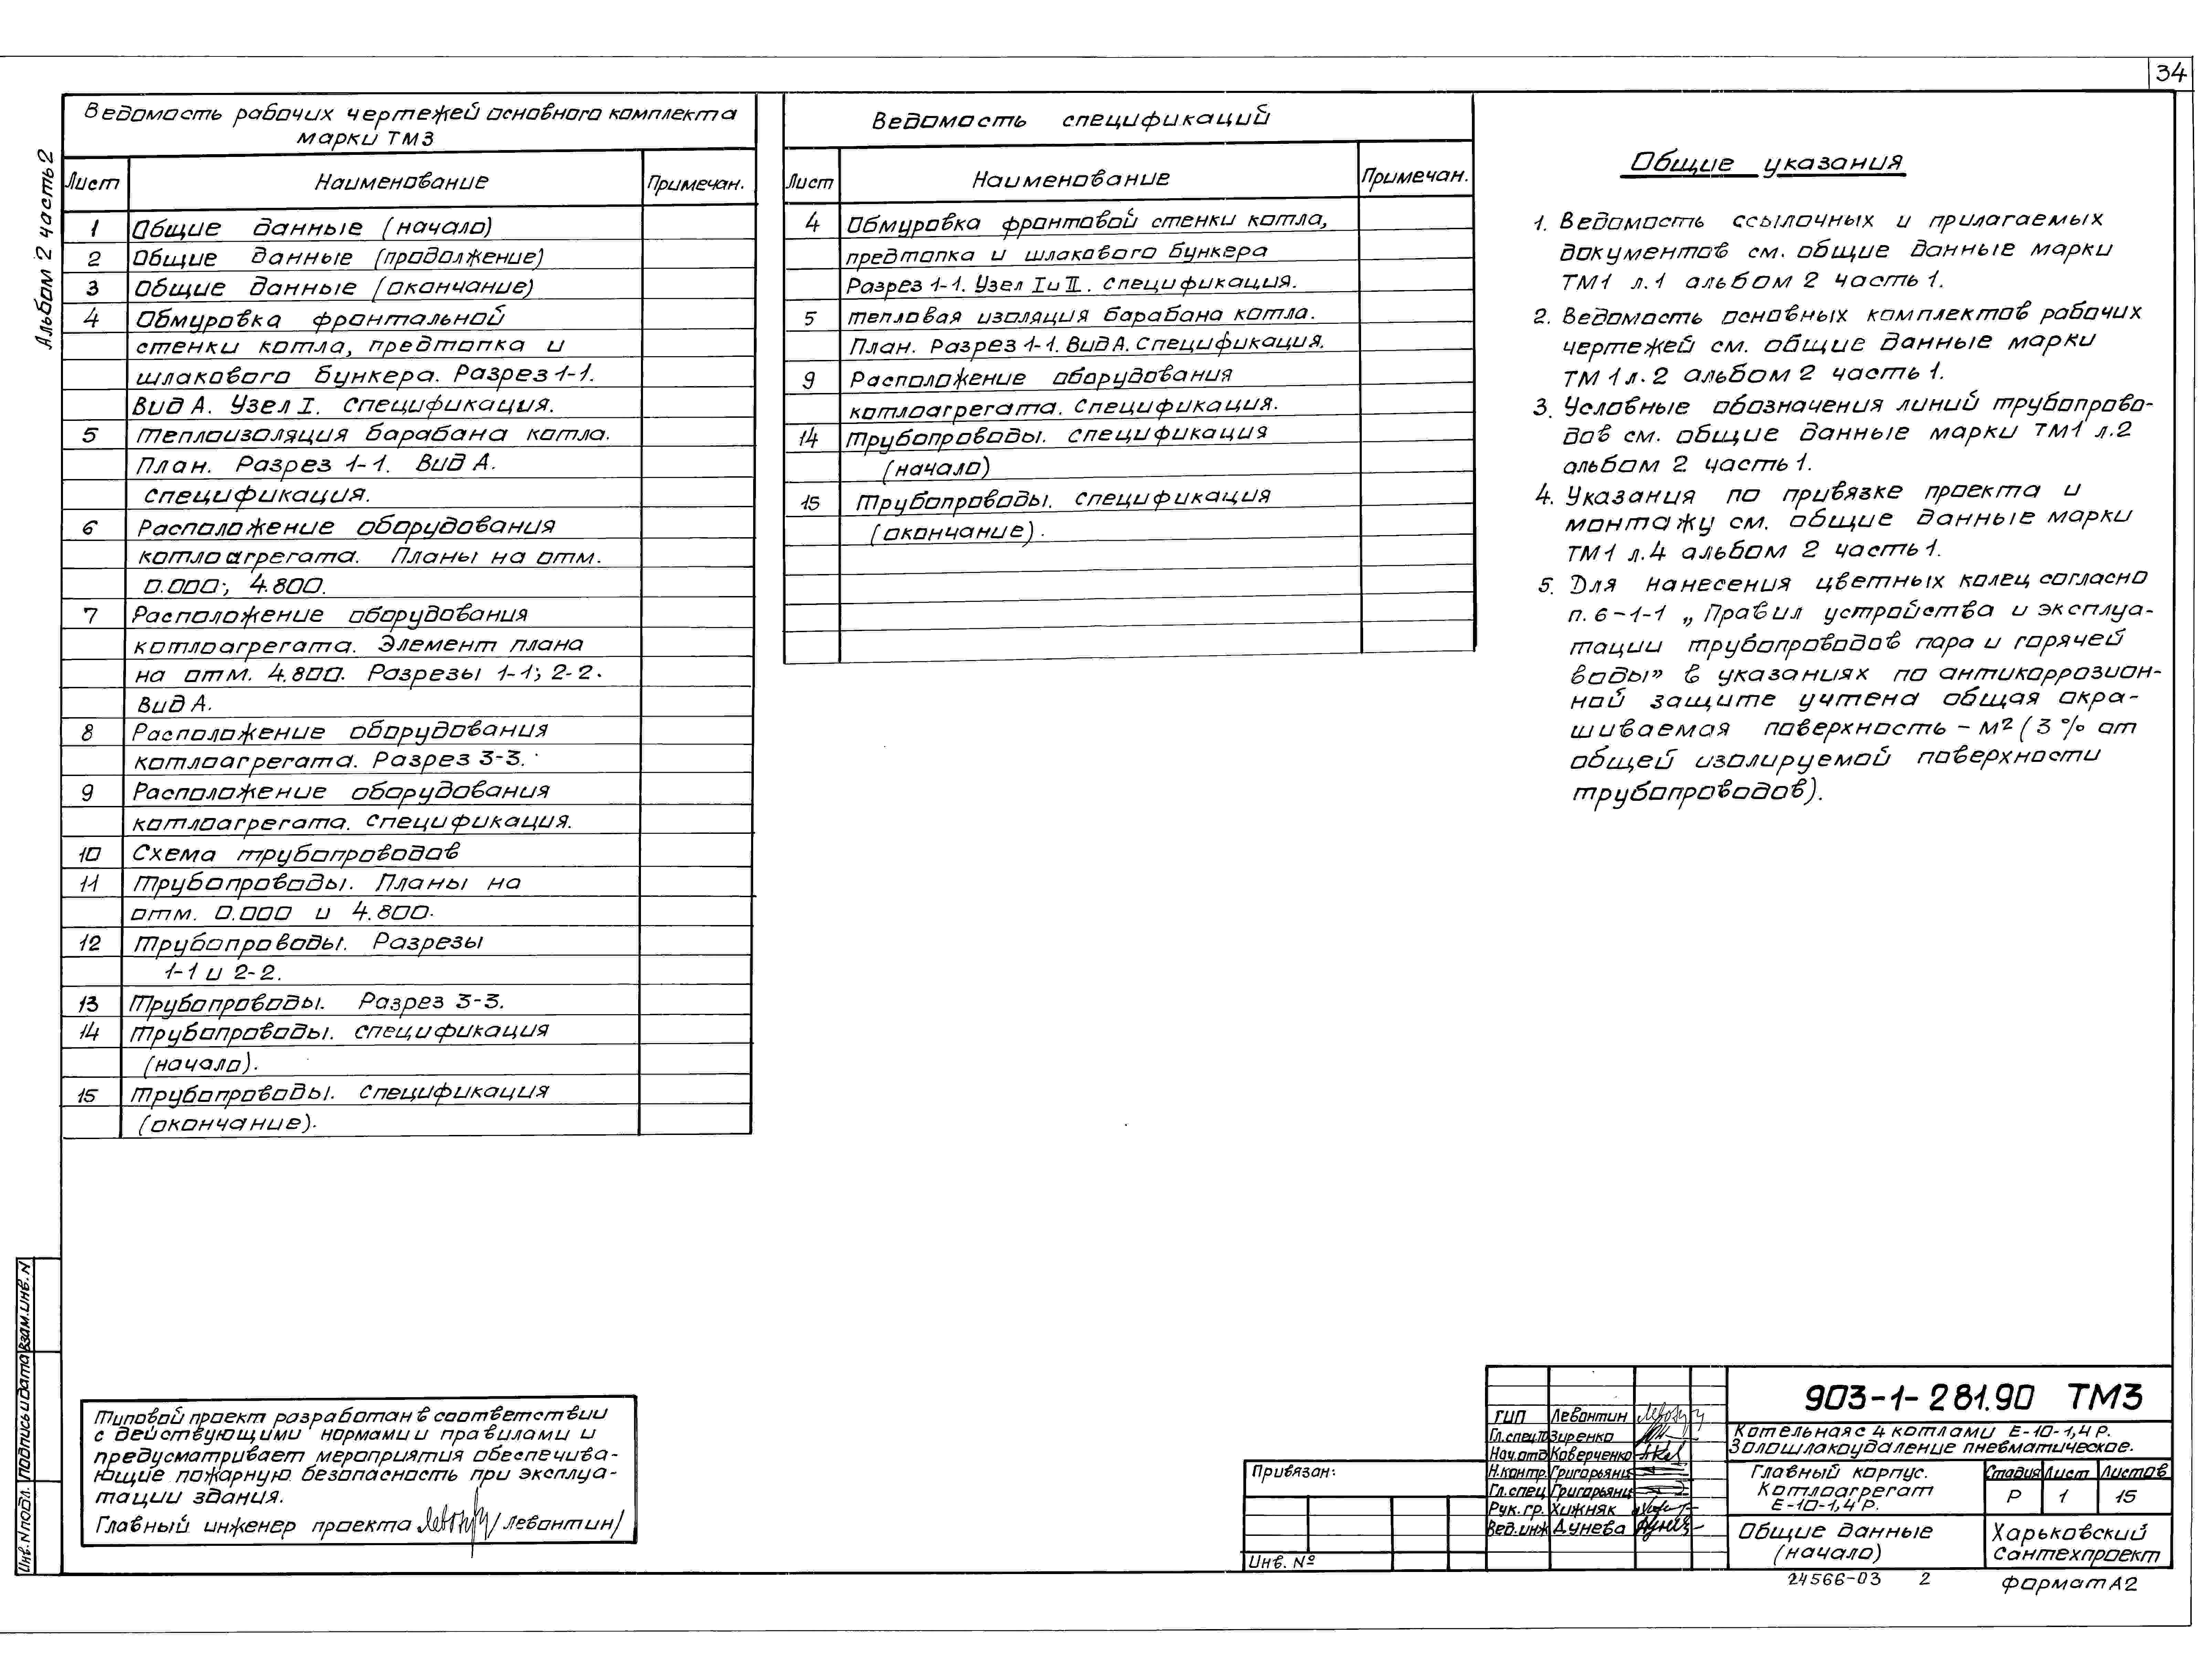 34
Альбом 2 часть 2
Ведомость рабочих чертежей основного комплекта
марки ТМ3
Лист Наименование Примечан.
1 Общие данные (начало)
2 Общие данные (продолжение)
3 Общие данные (окончание)
4 Обмуровка фронтальной
стенки котла, предтопка и
шлакового бункера. Разрез 1-1.
Вид А. Узел I. Спецификация.
5 Теплоизоляция барабана котла.
План. Разрез 1-1. Вид А.
Спецификация.
6 Расположение оборудования
котлоагрегата. Планы на отм.
0.000; 4.800.
7 Расположение оборудования
котлоагрегата. Элемент плана
на отм. 4.800. Разрезы 1-1; 2-2.
Вид А.
8 Расположение оборудования
котлоагрегата. Разрез 3-3.
9 Расположение оборудования
котлоагрегата. Спецификация.
10 Схема трубопроводов
11 Трубопроводы. Планы на
отм. 0.000 и 4.800.
12 Трубопроводы. Разрезы
1-1 и 2-2.
13 Трубопроводы. Разрез 3-3.
14 Трубопроводы. Спецификация
(начало).
15 Трубопроводы. Спецификация
(окончание).
Ведомость спецификаций
Лист Наименование Примечан.
4 Обмуровка фронтовой стенки котла,
предтопка и шлакового бункера
Разрез 1-1. Узел I и II. Спецификация.
5 Тепловая изоляция барабана котла.
План. Разрез 1-1. Вид А. Спецификация.
9 Расположение оборудования
котлоагрегата. Спецификация.
14 Трубопроводы. Спецификация
(начало)
15 Трубопроводы. Спецификация
(окончание).
Общие указания
1. Ведомость ссылочных и прилагаемых
документов см. общие данные марки
ТМ1 л.1 альбом 2 часть 1.
2. Ведомость основных комплектов рабочих
чертежей см. общие данные марки
ТМ 1 л. 2 альбом 2 часть 1.
3. Условные обозначения линий трубопрово-
дов см. общие данные марки ТМ1 л.2
альбом 2 часть 1.
4. Указания по привязке проекта и
монтажу см. общие данные марки
ТМ1 л.4 альбом 2 часть 1.
5. Для нанесения цветных колец согласно
п. 6-1-1 „Правил устройства и эксплуа-
тации трубопроводов пара и горячей
воды” в указаниях по антикоррозион-
ной защите учтена общая окра-
шиваемая поверхность - м2 (3 % от
общей изолируемой поверхности
трубопроводов).
Типовой проект разработан в соответствии
с действующими нормами и правилами и
предусматривает мероприятия обеспечива-
ющие пожарную безопасность при эксплуа-
тации здания.
Главный инженер проекта /Левантин/
Инв. N подл. Подпись и дата Взам. инв. N
Привязан:
Инв. №
ГИП Левантин
Гл.спец.ТО Зиренко
Нач.отд Коверченко
Н.контр. Григорьянц
Гл.спец Григорьянц
Рук. гр. Хижняк
Вед.инж Дунева
903-1-281.90 ТМ3
Котельная с 4 котлами Е-10-1,4 Р.
Золошлакоудаление пневматическое.
Главный корпус.
Котлоагрегат
Е-10-1,4 Р.
Стадия Лист Листов
Р 1 15
Общие данные
(начало)
Харьковский
Сантехпроект
24566-03 2
Формат А2